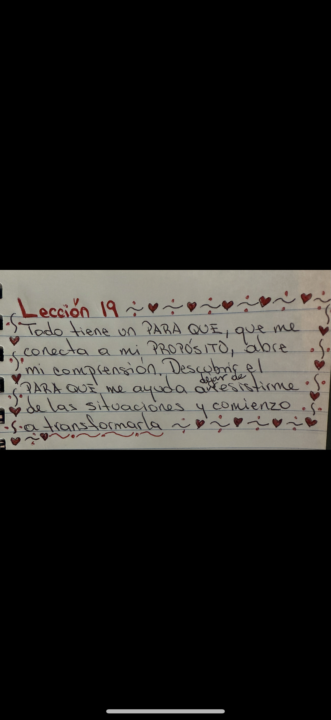 Lección 19
Todo tiene un PARA QUE, que me
conecta a mi PROPÓSITO, abre
mi comprensión. Descubrir el
PARA QUE me ayuda a dejar de resistirme
de las situaciones y comienzo
a transformarla